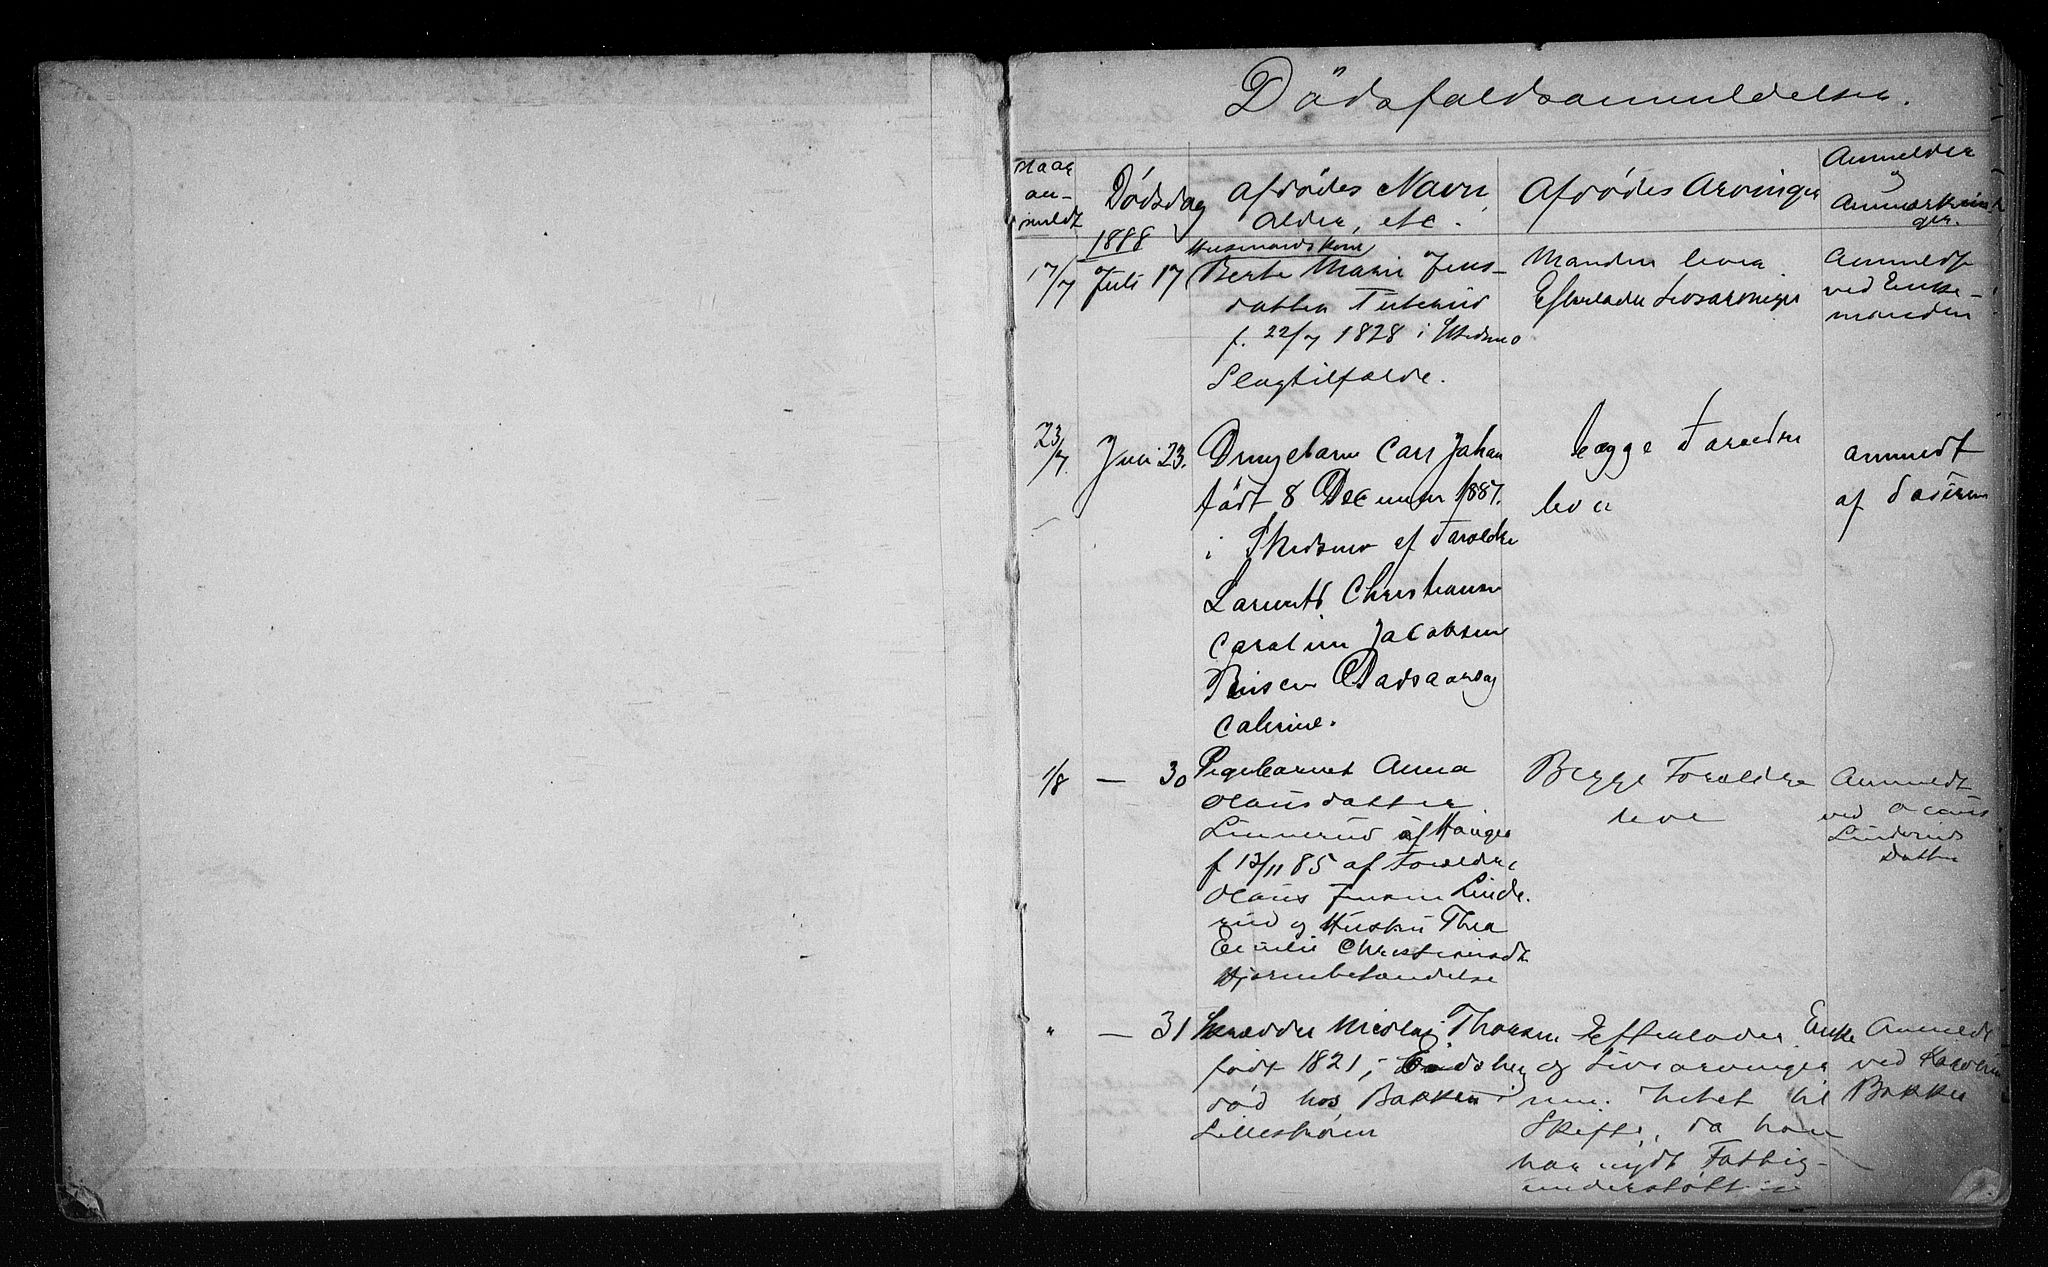 Dødsfaldsanmeldelser.
Naar
an-
meldt
Dødsdag
Afdødes Navn,
Alder, etc.
Afdødes Arvinger
Anmelder
og
Anmærknin-
ger.
1888
17/7
Juli 17
Husmandskone
Berte Marie Jens-
datter
f. 22/7 1828 i Skedsmo
Slagtilfælde.
Manden lever.
Efterlader Livsarvinger
Anmeldt
ved Enke-
manden
23/7.
Juli 23.
Drengebarn Carl Johan
født 8 December 1887.
i Skedsmo af Forældre
Laurits Christiansen
Caroline Jacobsen
Dødsaarsag
Colerine.
begge Forældre
leve
anmeldt
af Faderen
1/8
— 30
Pigebarnet Anna
Olausdatter
Linnerud af
f 13/11 85 af Forældre
Olaus Jensen Linde-
rud og Hustru Thea
Emilie Christiansdtr
Hjernebetændelse
Begge Forældre
leve
Anmeldt
ved Olaus
Linderuds
Datter
"
— 31
Skrædder Nicolai Thoresen
født 1821, i Eidsberg
død hos Bakken
Lillestrømen
Efterlader Enke
og Livsarvinger
men Intet til
Skifte, da han
har nydt Fattig-
understøttelse
Anmeldt
ved Karoline
Bakken
1.